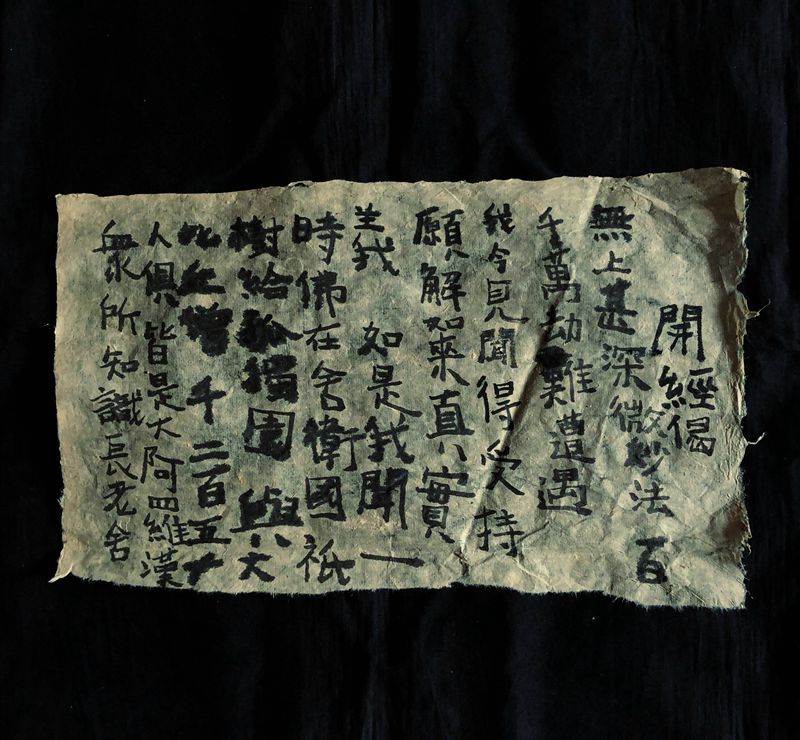 開經偈
無上甚深微妙法 百
千萬劫難遭遇
我今見聞得受持
願解如來真實
義 如是我聞 一
時佛在舍衛國祇
樹給孤獨園 與大
比丘僧 千二百五十
人俱皆是大阿羅漢
衆所知識長老舍